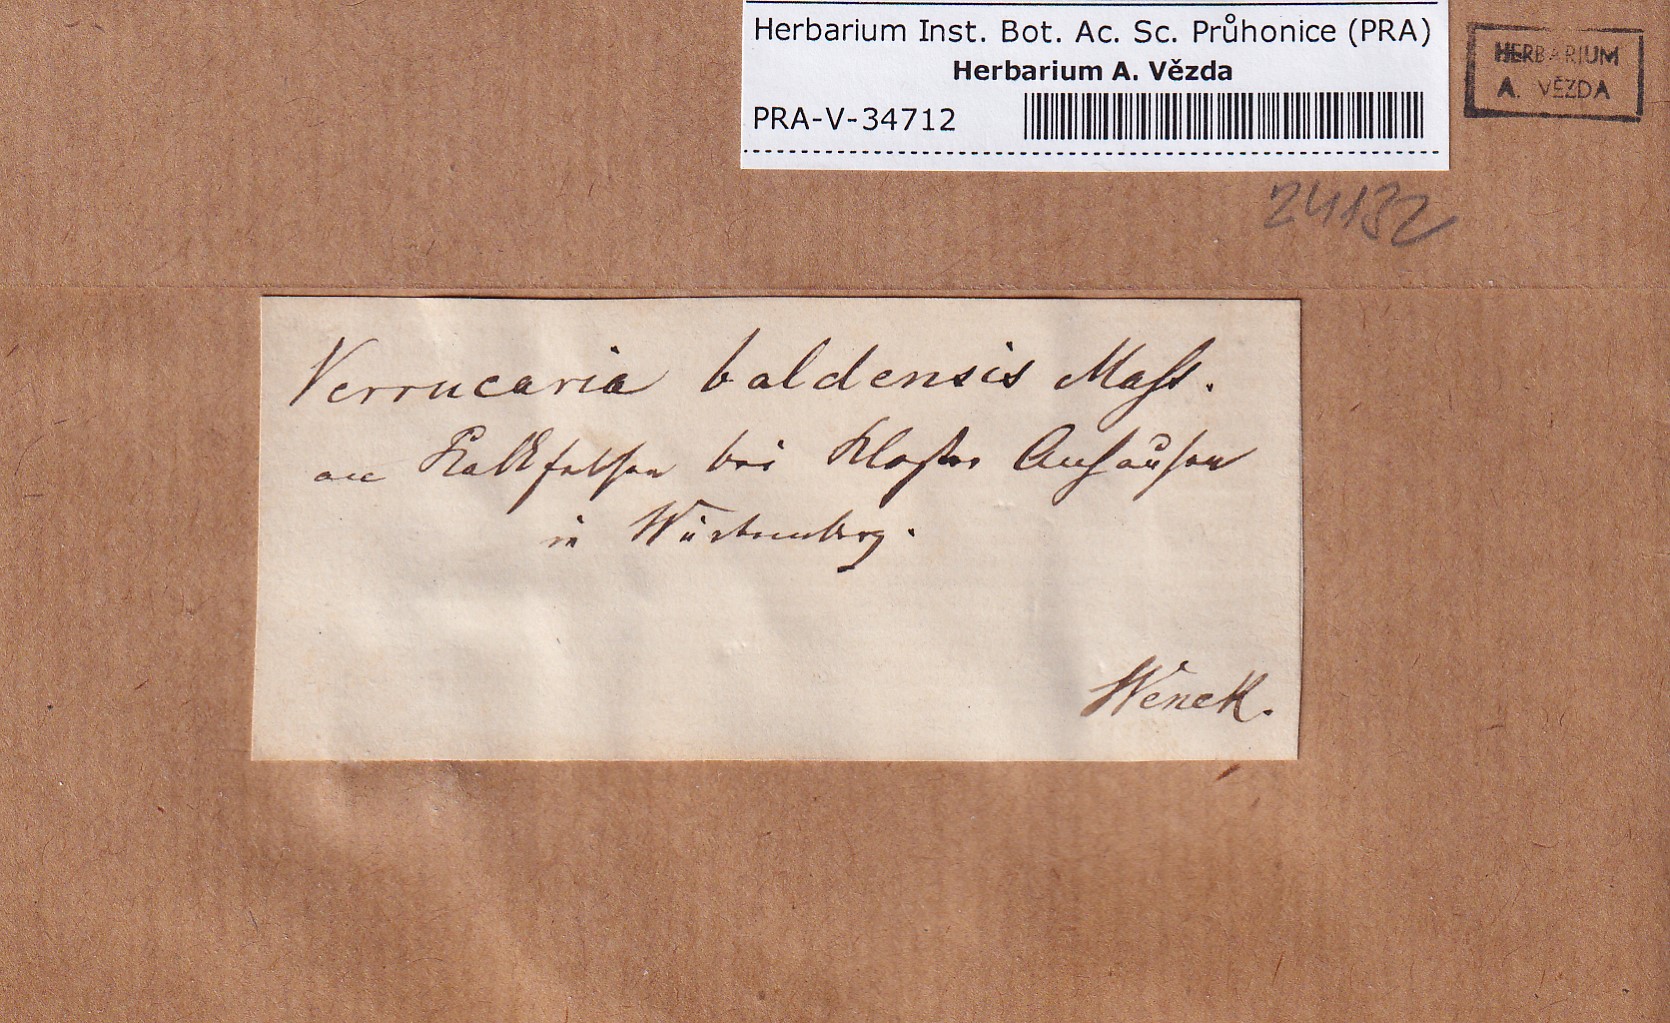 Herbarium Inst. Bot. Ac. Sc. Průhonice (PRA)
Herbarium A. Vězda
PRA-V-34712
HERBARIUM
A. VĚZDA
24132
Verrucaria baldensis Maſs.
an Kalkfelsen bei Kloster Anhausen
in Würtemberg.
Wenck.